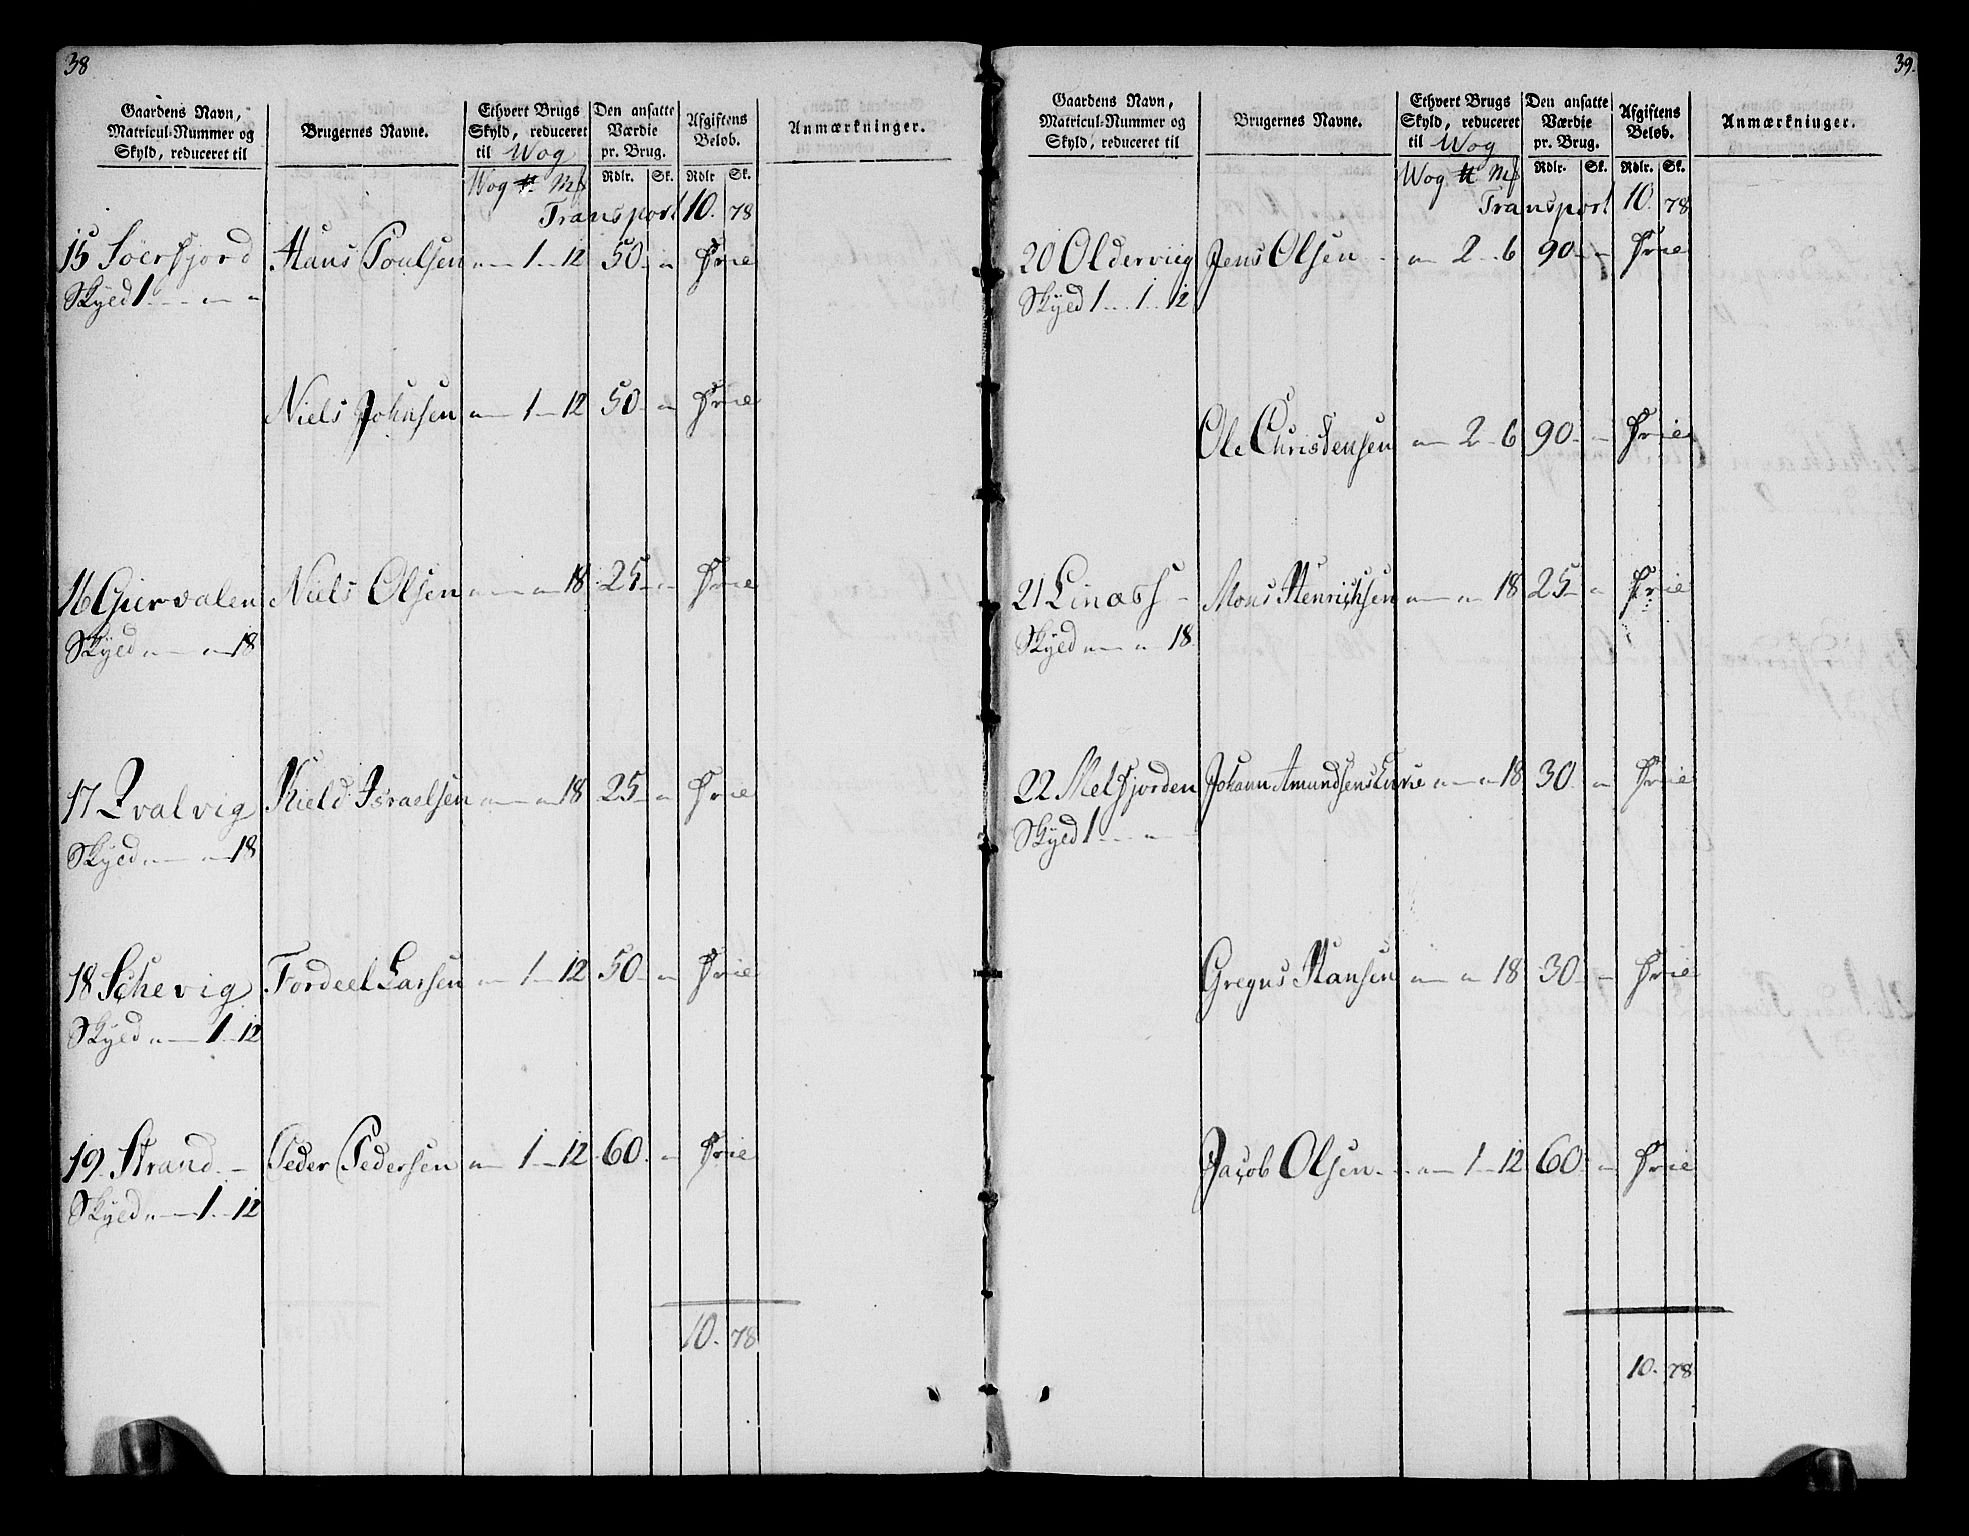 38
Gaardens Navn, Matricul-Nummer og Skyld, reduceret til | Brugernes Navne. | Ethvert Brugs Skyld, reduceret til Wog | Den ansatte Værdie pr. Brug. | Afgiftens Beløb. | Anmærkninger.
Wog ℔ Mk | Rdlr. Sk. | Rdlr Sk.
Transport 10. 78
15 Søerfjord Hans Poulsen „ 1 12 50 „ Frie
Skyld 1 „ „
Niels Johnsen „ 1 12 50 „ Frie
16 Giervalen Niels Olsen „ „ 18 25 „ Frie
Skyld „ „ 18
17 Qvalvig Kield Israelsen „ „ 18 25 „ Frie
Skyld „ „ 18
18 Schevig Fordeel Larsen „ 1 12 50 „ Frie
Skyld „ 1 12
19 Strand Peder Pedersen „ 1 12 60 „ Frie
Skyld „ 1 12
10. 78
39.
Gaardens Navn, Matricul-Nummer og Skyld, reduceret til | Brugernes Navne. | Ethvert Brugs Skyld, reduceret til Wog | Den ansatte Værdie pr. Brug. | Afgiftens Beløb. | Anmærkninger.
Wog ℔ Mk | Rdlr. Sk. | Rdlr. Sk.
Transport 10. 78
20 Oldervig Jens Olsen „ 2 6 90 „ Frie
Skyld 1 1 12
Ole Christensen „ 2 6 90 „ Frie
21 Linæss Mons Henrichsen „ „ 18 25 „ Frie
Skyld „ „ 18
22 Melfjorden Johann Amundsens Enke „ „ 18 30 „ Frie
Skyld 1 „
Gregus Hansen „ „ 18 30 „ Frie
Jacob Olsen „ 1 12 60 „ Frie
10. 78